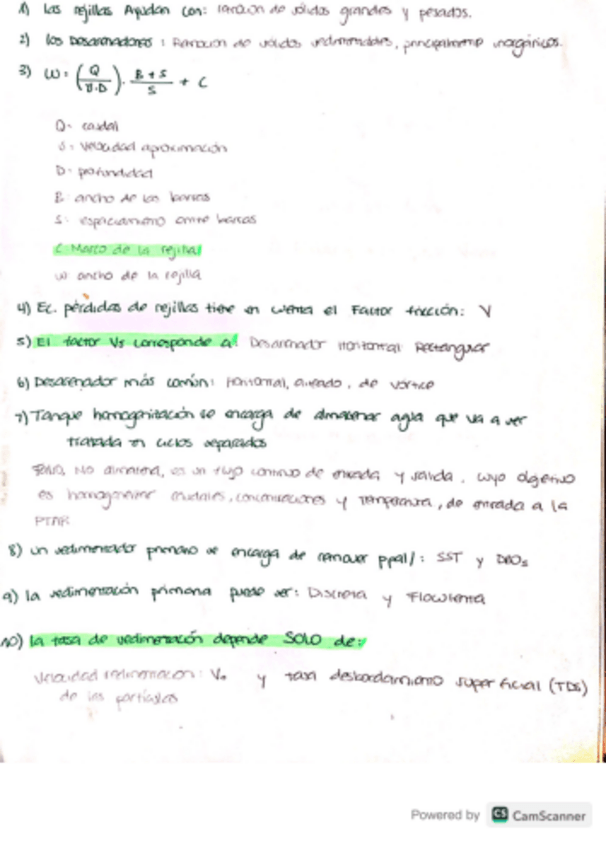 1) las rejillas Ayudan con: remoción de sólidos grandes y pesados.
2) los Desarenadores: Remoción de sólidos sedimentables, principalmente inorgánicos.
3) W = (Q / V·D) · B + S / S + C
Q = caudal
V = velocidad aproximación
D = profundidad
B ancho de las barras
S = espaciamiento entre barras
C Marco de la rejilla
W ancho de la rejilla
4) Ec. pérdidas de rejillas tiene en cuenta el Factor fricción: V
5) El factor Vs corresponde a: Desarenador Horizontal Rectangular
6) Desarenador más común: Horizontal, aireado, de vórtice
7) Tanque homogenización se encarga de almacenar agua que va a ser
tratada en ciclos separados
Falso, No almacena, es un flujo continuo de entrada y salida, cuyo objetivo
es homogenizar caudales, concentraciones y Temperatura, de entrada a la
PTAR
8) un sedimentador primario se encarga de remover ppal/: SST y DBO5
9) la sedimentación primaria puede ser: Discreta y Floculenta
10) la tasa de sedimentación depende SOLO de:
Velocidad sedimentacion: Vo y tasa desbordamiento superficial (TDS)
de las partículas
Powered by CS CamScanner